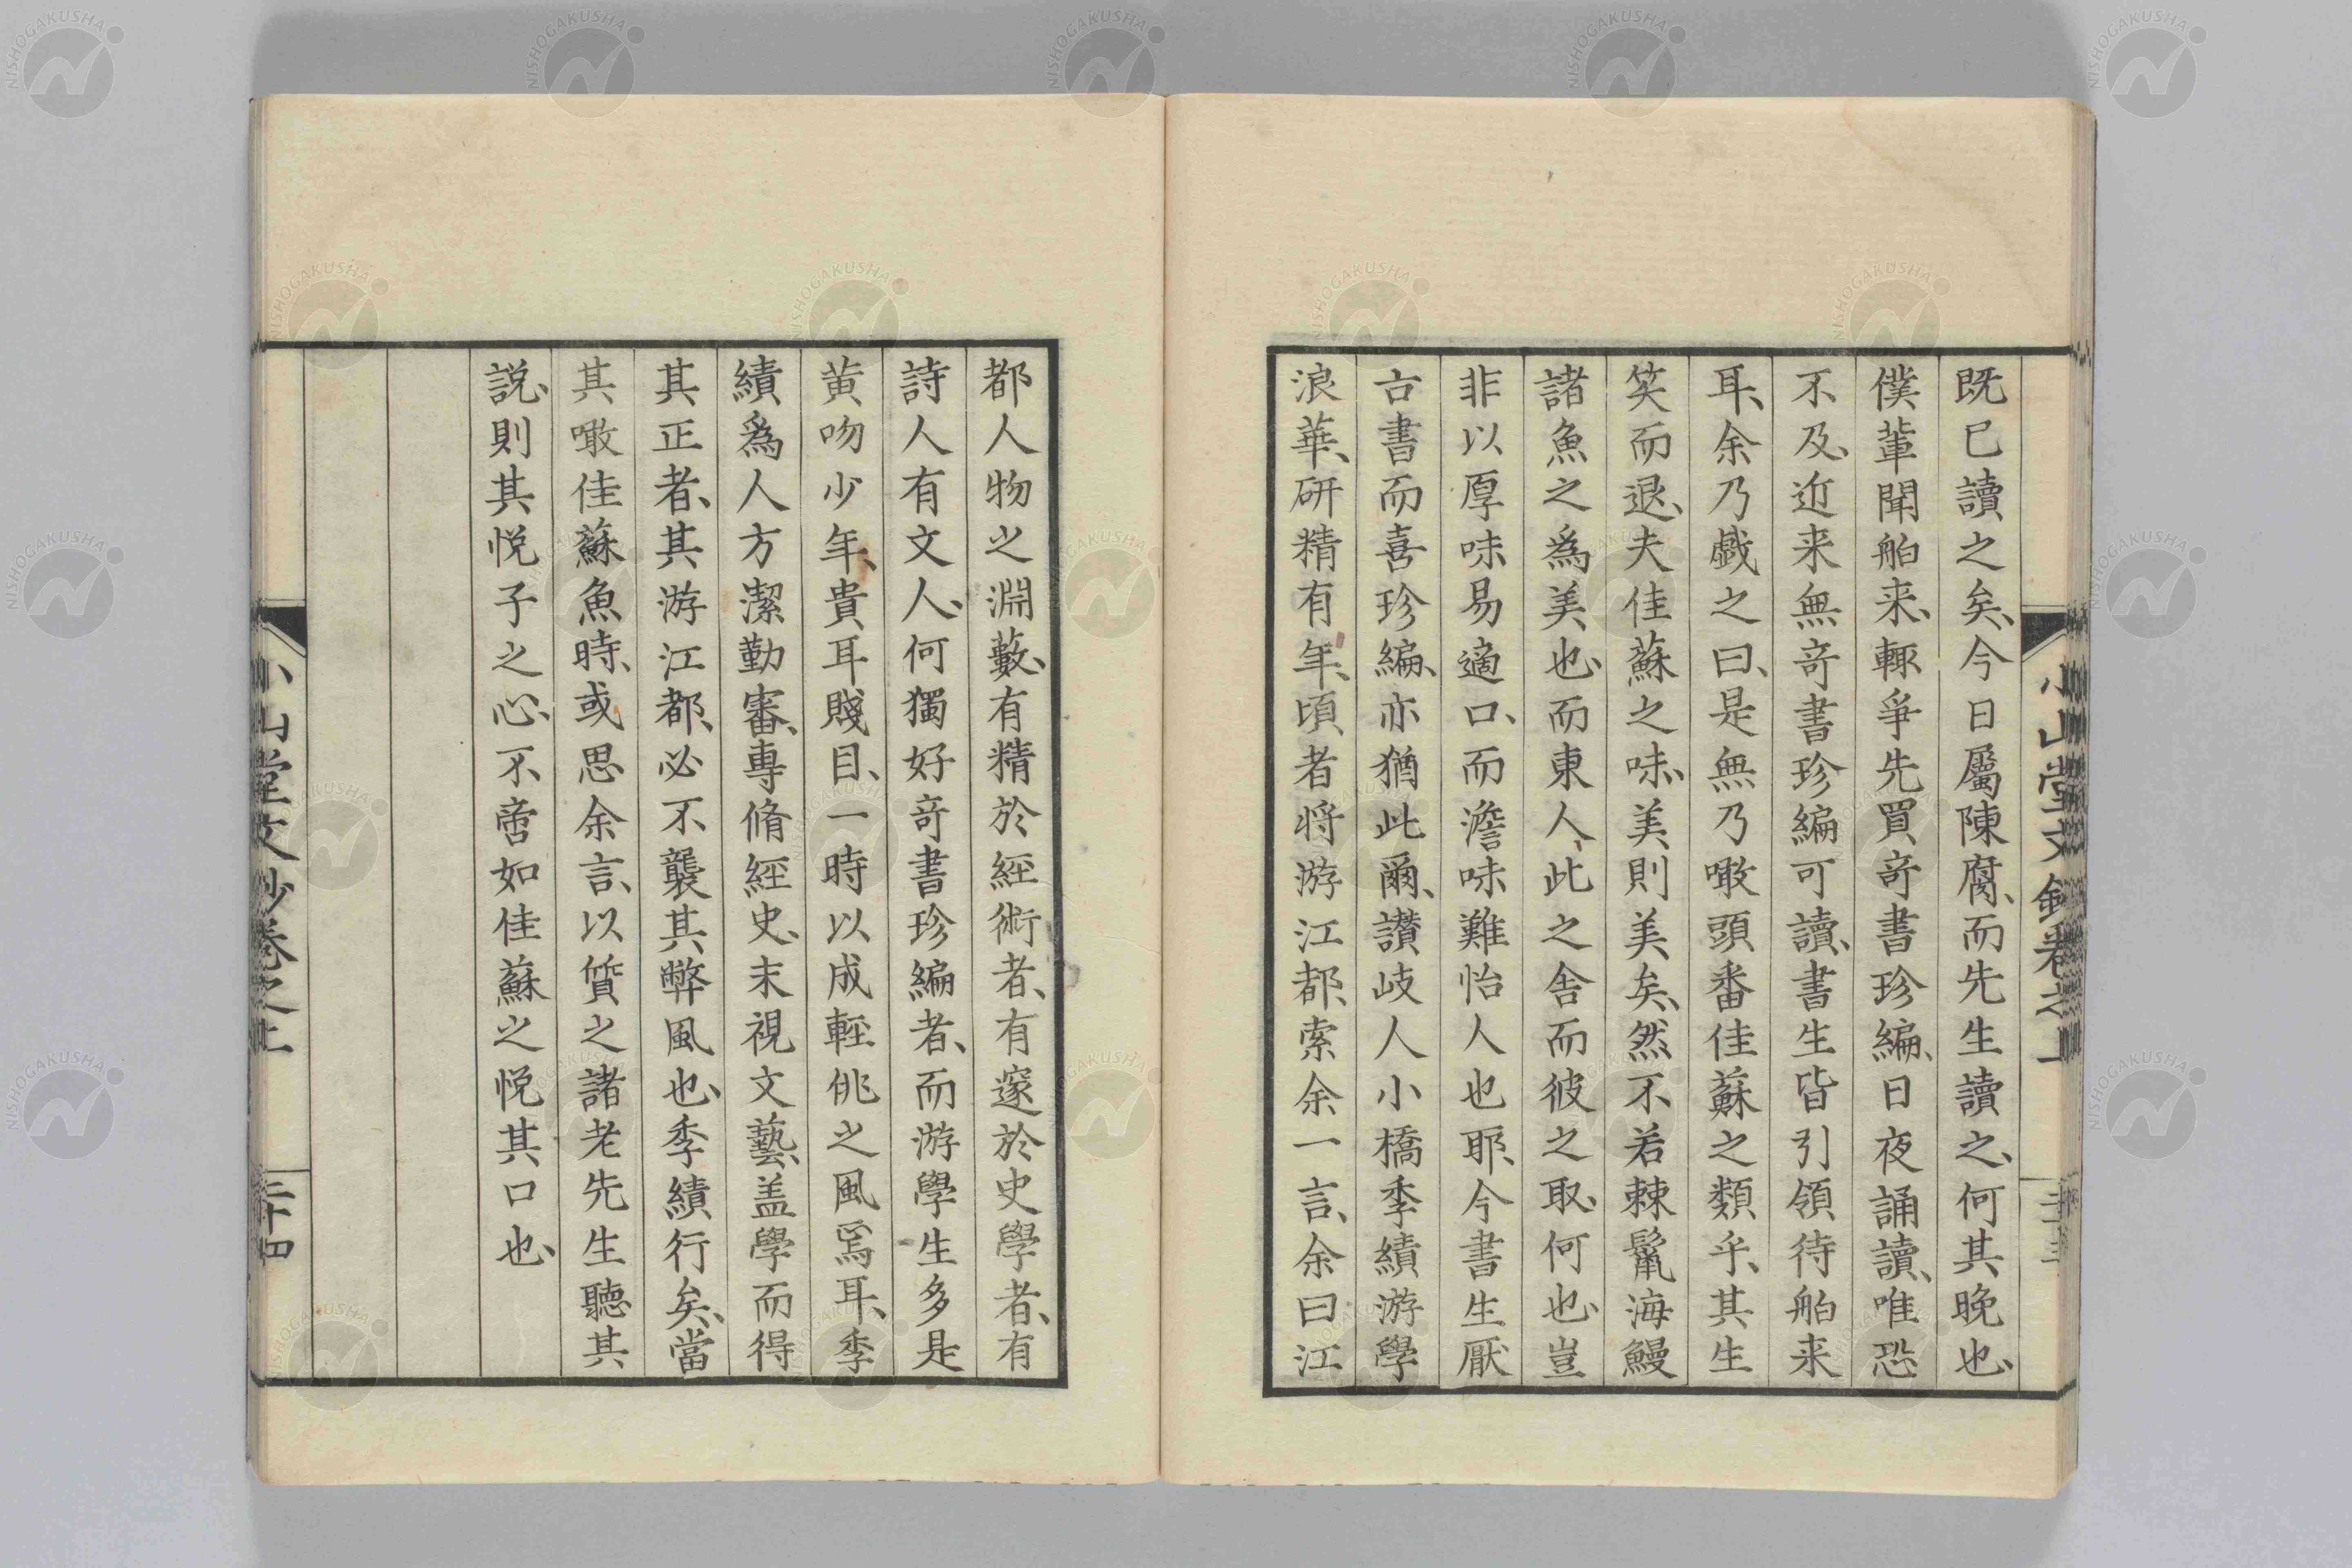 既已讀之矣、今日屬陳腐、而先生讀之、何其晚也、
僕輩聞舶来、輙爭先買竒書珍編、日夜誦讀、唯恐
不及、近来無竒書珍編可讀、書生皆引領待舶来
耳、余乃戯之曰、是無乃噉頭番佳蘇之類乎、其生
笑而退、夫佳蘇之味、美則美矣、然不若棘鬣海鰻
諸魚之爲美也、而東人、此之舎而彼之取、何也、豈
非以厚味易適口、而澹味難怡人也耶、今書生厭
古書而喜珍編、亦猶此爾、讃岐人小橋季績游學
浪華、研精有年、頃者将游江都、索余一言、余曰江
都人物之淵藪、有精於經術者、有邃於史學者、有
詩人有文人、何獨好竒書珍編者、而游學生多是
黄吻少年、貴耳賤目、一時以成輕佻之風焉耳、季
績爲人方潔勤審、專脩經史、末視文藝、盖學而得
其正者、其游江都、必不襲其弊風也、季績行矣、當
其噉佳蘇魚時、或思余言、以質之諸老先生聽其
説、則其悦子之心、不啻如佳蘇之悦其口也、
小山堂文鈔卷之上
三十三
小山堂文鈔卷之上
三十四
NISHOGAKUSHA